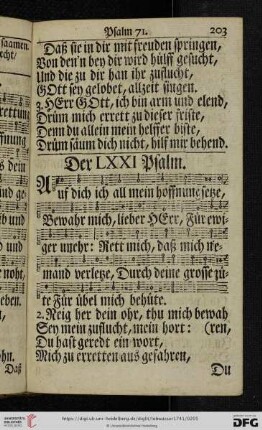 Psalm 71. 203
Daß sie in dir mit freuden springen,
Von den'n bey dir wird hülff gesucht,
Und die zu dir han ihr zuflucht,
GOtt sey gelobet, allzeit singen.
3. HErr GOtt, ich bin arm und elend,
Drüm mich errett zu dieser friste,
Denn du allein mein helffer biste,
Drüm säum dich nicht, hilf mir behend.
Der LXXI Psalm.
Auf dich ich all mein hoffnung setze,
Bewahr mich, lieber HErr, Für ewi-
ger unehr: Rett mich, daß mich nie-
mand verletze, Durch deine grosse gü-
te Für übel mich behüte.
2. Neig her dein ohr, thu mich bewah
Sey mein zuflucht, mein hort: (ren,
Du hast geredt ein wort,
Mich zu erretten aus gefahren,
Du
saamen.
Daß
DFG